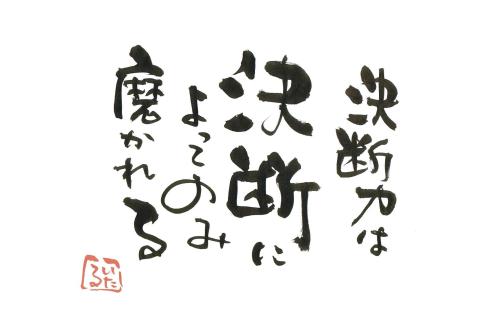 決断力は
決断に
よってのみ
磨かれる
いた
るゑ